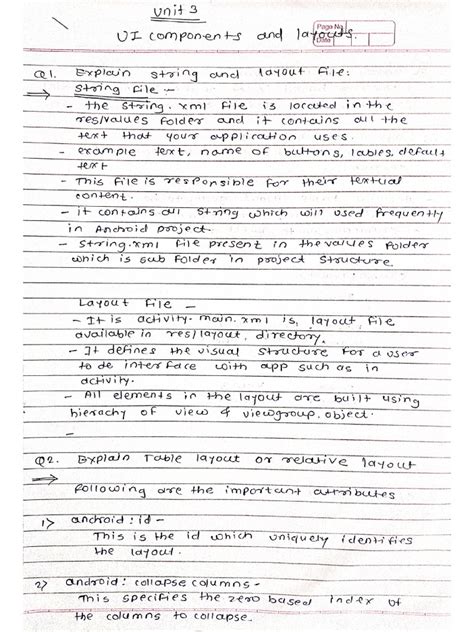 Unit 3
UI components and layouts
Page No.
Date
Q1. Explain string and layout file:
→ String file :-
- the string.xml file is located in the
res/values folder and it contains all the
text that your application uses.
- example text, name of buttons, lables, default
text
- This file is responsible for their textual
content.
- it contains all string which will used frequently
in Android project.
- String.xml file present in the values folder
which is sub folder in project structure
Layout file -
- It is activity.main.xml is, layout file
available in res/layout, directory.
- It defines the visual structure for a user
to de interface with app such as in
activity.
- All elements in the layout are built using
hierachy of view & viewgroup.object.
-
Q2. Explain Table layout or relative layout
→ following are the important attributes
1) android : id -
This is the id which uniquely identifies
the layout.
2) android : collapse columns -
This specifies the zero based index of
the columns to collapse.